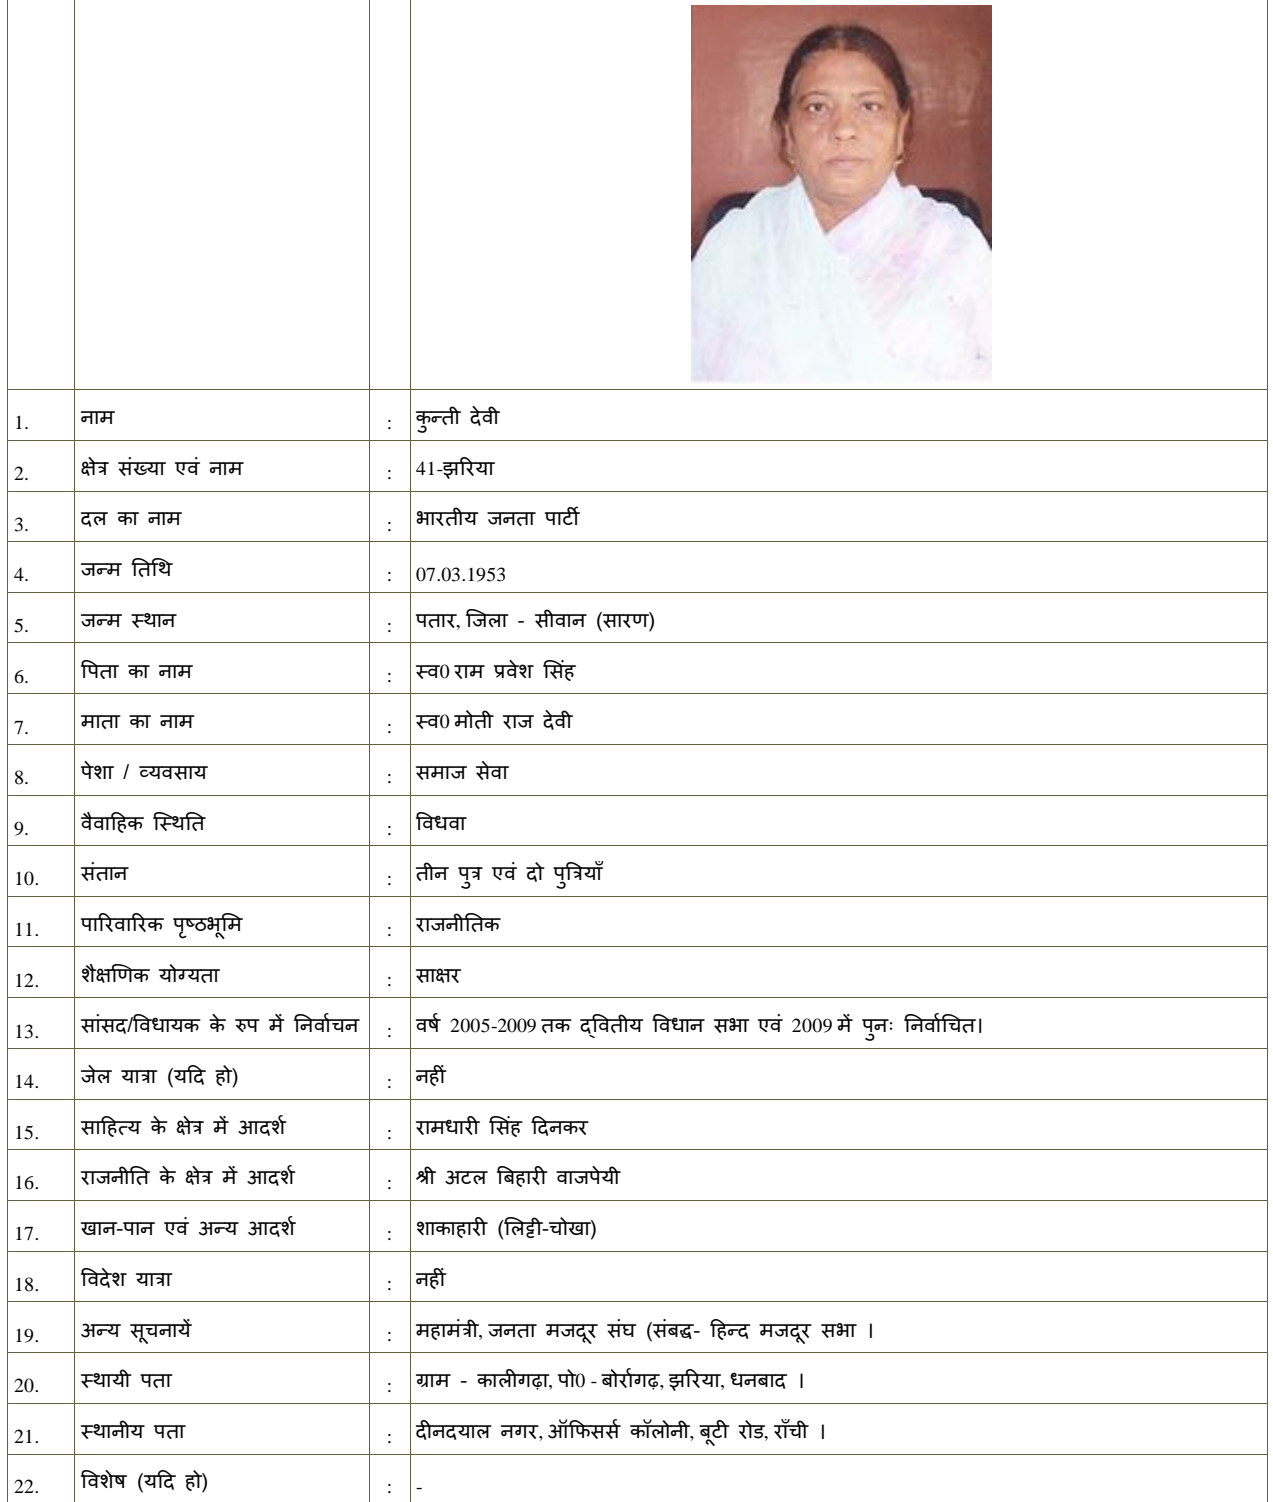 1. नाम : कुन्ती देवी
2. क्षेत्र संख्या एवं नाम : 41-झरिया
3. दल का नाम : भारतीय जनता पार्टी
4. जन्म तिथि : 07.03.1953
5. जन्म स्थान : पतार, जिला - सीवान (सारण)
6. पिता का नाम : स्व0 राम प्रवेश सिंह
7. माता का नाम : स्व0 मोती राज देवी
8. पेशा / व्यवसाय : समाज सेवा
9. वैवाहिक स्थिति : विधवा
10. संतान : तीन पुत्र एवं दो पुत्रियाँ
11. पारिवारिक पृष्ठभूमि : राजनीतिक
12. शैक्षणिक योग्यता : साक्षर
13. सांसद/विधायक के रुप में निर्वाचन : वर्ष 2005-2009 तक द्वितीय विधान सभा एवं 2009 में पुनः निर्वाचित।
14. जेल यात्रा (यदि हो) : नहीं
15. साहित्य के क्षेत्र में आदर्श : रामधारी सिंह दिनकर
16. राजनीति के क्षेत्र में आदर्श : श्री अटल बिहारी वाजपेयी
17. खान-पान एवं अन्य आदर्श : शाकाहारी (लिट्टी-चोखा)
18. विदेश यात्रा : नहीं
19. अन्य सूचनायें : महामंत्री, जनता मजदूर संघ (संबद्ध- हिन्द मजदूर सभा ।
20. स्थायी पता : ग्राम - कालीगढ़ा, पो0 - बोर्रागढ़, झरिया, धनबाद ।
21. स्थानीय पता : दीनदयाल नगर, ऑफिसर्स कॉलोनी, बूटी रोड, राँची ।
22. विशेष (यदि हो) : -